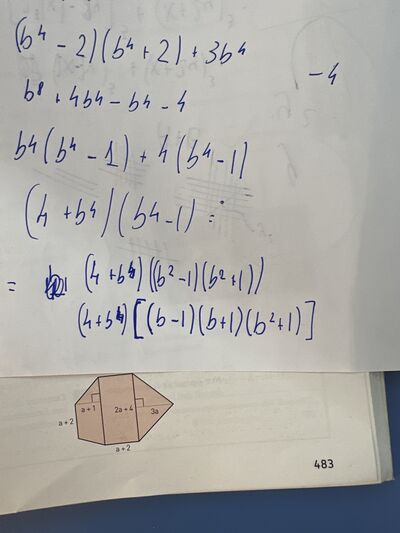 (b⁴ - 2)(b⁴ + 2) + 3b⁴
- 4
b⁸ + 4b⁴ - b⁴ - 4
b⁴(b⁴ - 1) + 4(b⁴ - 1)
(4 + b⁴)(b⁴ - 1) =
= (4 + b⁴)((b² - 1)(b² + 1))
(4 + b⁴)[(b - 1)(b + 1)(b² + 1)]
a + 1
2a + 4
3a
a + 2
a + 2
483